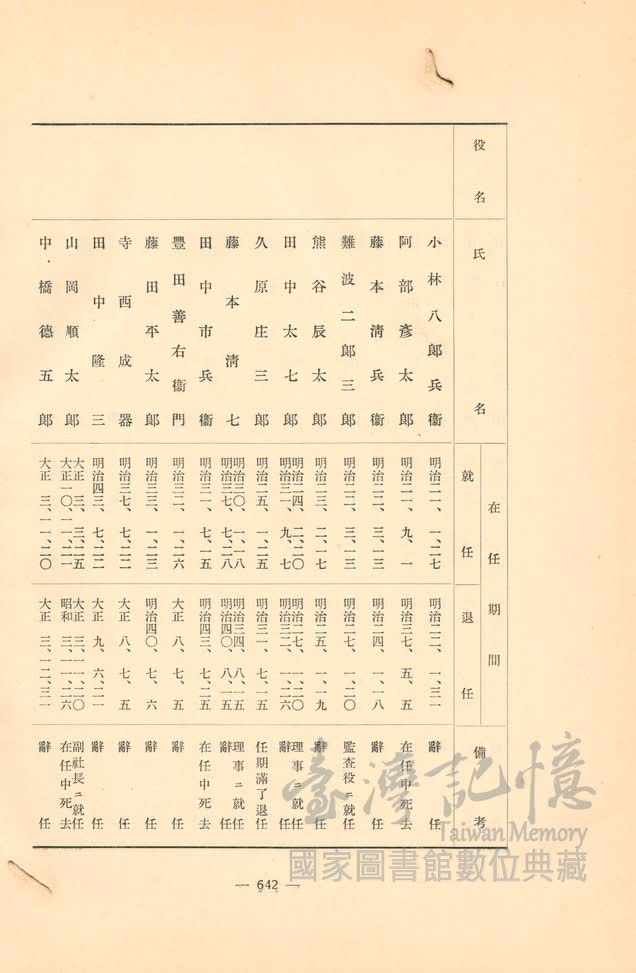 役名 氏名 在任期間 就任 退任 備考
小林八郎兵衞 明治二一、一、二七 明治二二、一、三一 辭任
阿部彥太郎 明治二一、九、一 明治三七、五、五 在任中死去
藤本淸兵衞 明治二二、三、一三 明治二四、一、一八 辭任
難波二郎三郎 明治二二、三、一三 明治二七、一、二〇 監査役ニ就任
熊谷辰太郎 明治二三、二、一七 明治二五、一、一九 辭任
田中太七郎 明治二四、二、二〇 明治二七、一、二〇 理事ニ就任
明治三一、九、七 明治三二、一、二六 辭任
久原庄三郎 明治二五、一、二五 明治三一、七、一五 任期滿了退任
藤本淸七 明治三〇、一、一八 明治三四、八、一五 理事ニ就任
明治三七、七、二八 明治四〇、八、一五 辭任
田中市兵衞 明治三一、七、一五 明治四三、七、二五 在任中死去
豐田善右衞門 明治三二、一、二六 大正八、七、五 辭任
藤田平太郎 明治三三、一、二三 明治四〇、七、六 辭任
寺西成器 明治三七、七、二二 大正八、七、五 辭任
田中隆三 明治四三、七、二二 大正九、六、二一 辭任
山岡順太郎 大正三、三、二五 大正三、一一、二〇 副社長ニ就任
大正一〇、一一、二一 昭和三、一一、二六 在任中死去
中橋德五郎 大正三、一一、二〇 大正三、一二、三一 辭任
臺灣記憶
Taiwan Memory
國家圖書館數位典藏
— 642 —